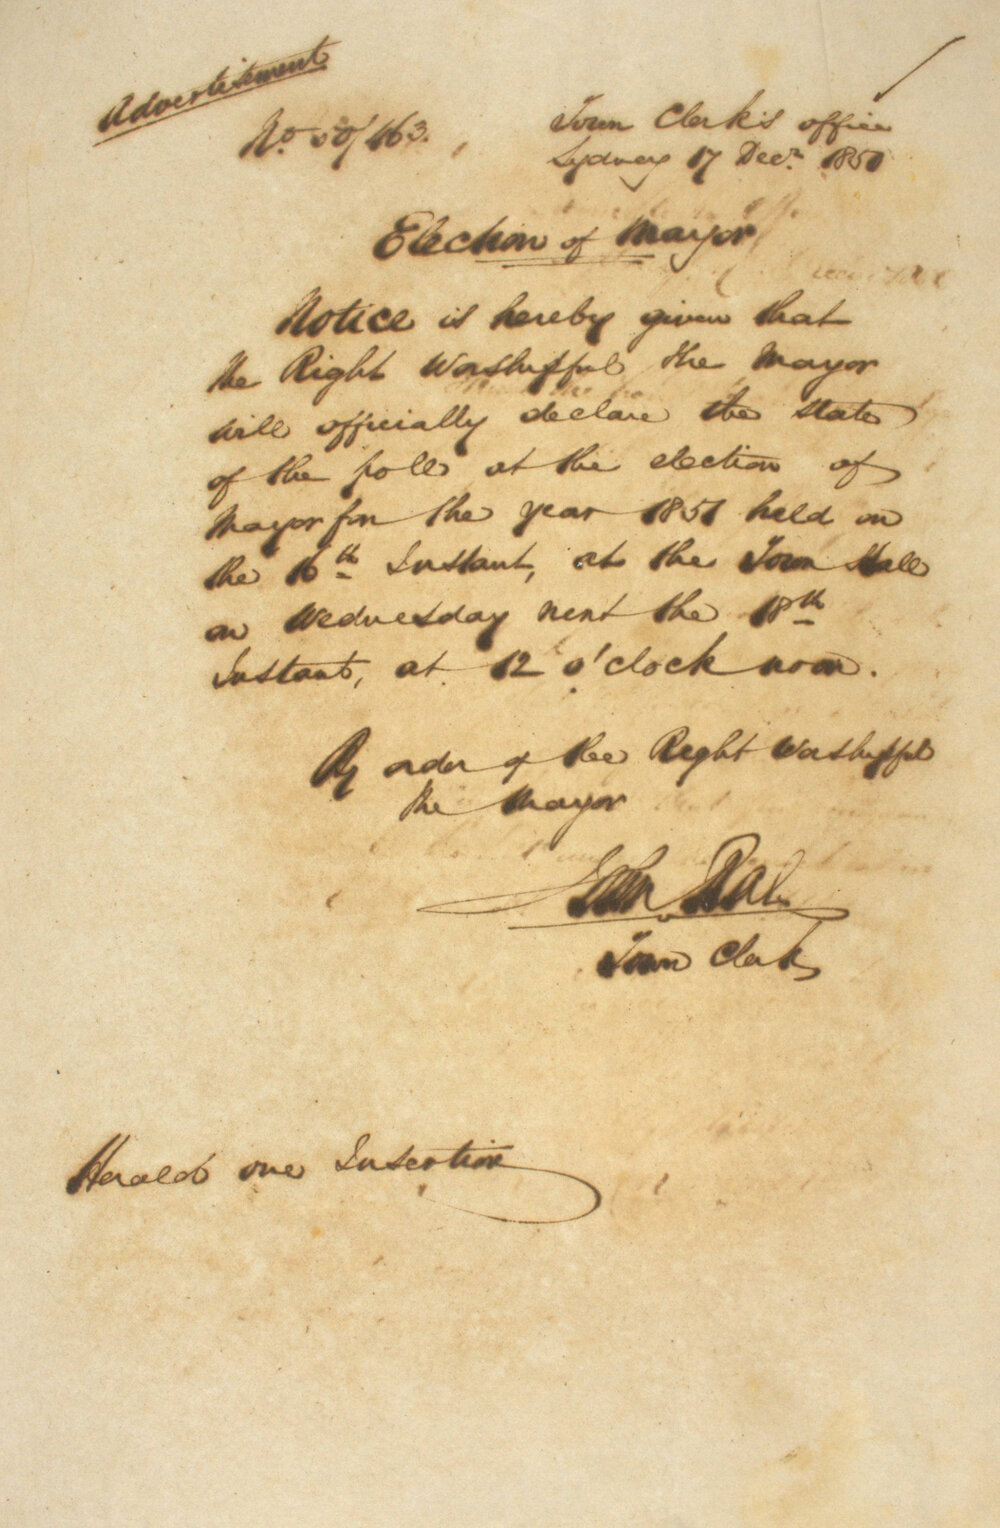 Advertisement
No. 50/163.
Town Clerk's office
Sydney 17 Decr. 1850
Election of Mayor
Notice is hereby given that
the Right Worshipful the Mayor
will officially declare the state
of the poll at the election of
Mayor for the year 1851 held on
the 16th Instant, at the Town Hall
on Wednesday next the 18th
Instant, at 12 o'clock noon.
By order of the Right Worshipful
the Mayor
John Rae
Town Clerk
Herald one Insertion